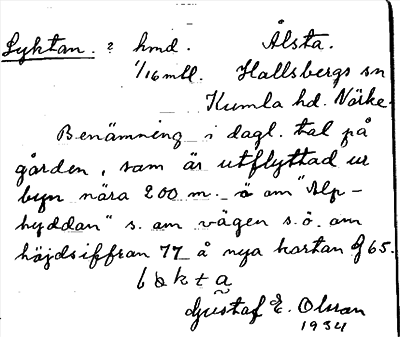 Lyktan. ? hmd. Ålsta.
1/16 mtl. Hallsbergs sn
Kumla hd. Närke.
Benämning i dagl. tal på
gården, som är utflyttad ur
byn nära 200 m. ö om "Alp-
hyddan" s. om vägen s.ö. om
höjdsiffran 77 å nya kartan f 65.
Gustaf E. Olsson
1934